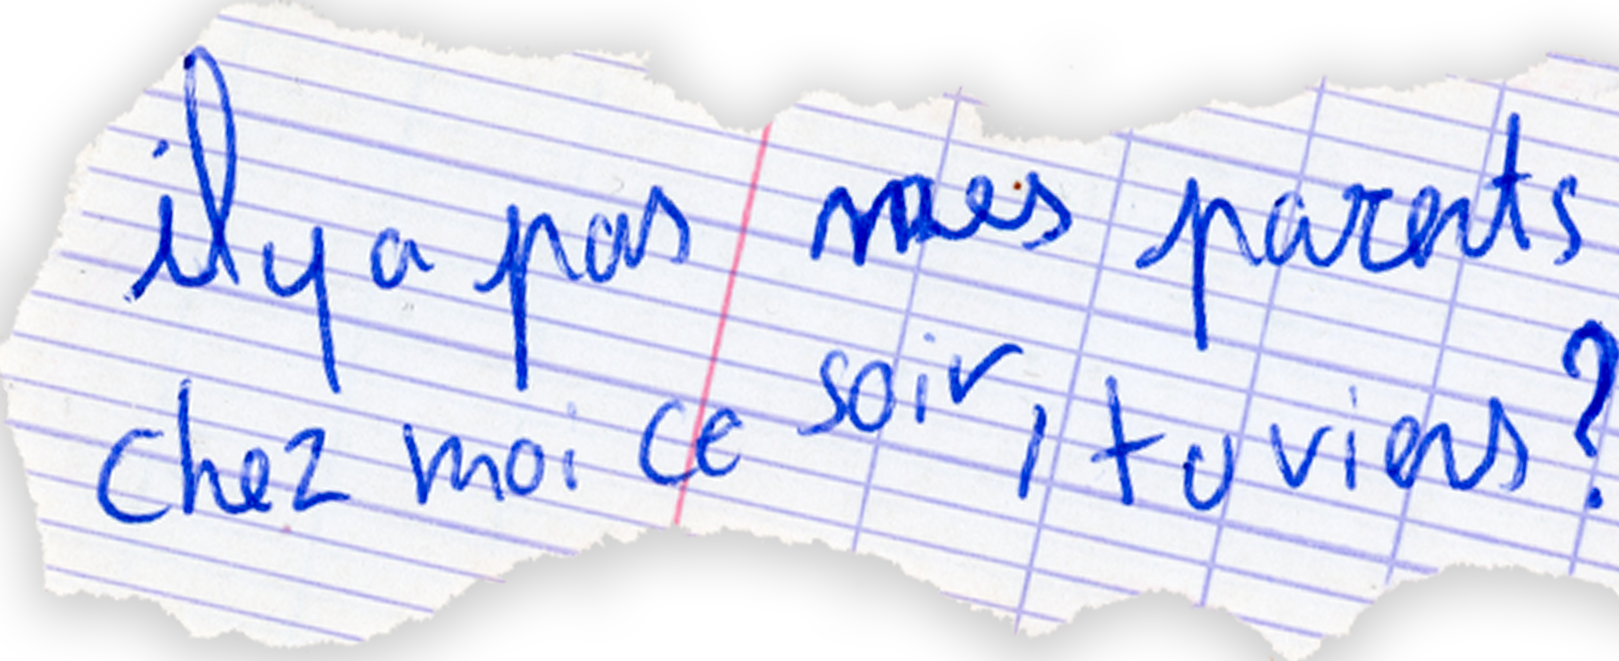 il y a pas mes parents
chez moi ce soir, tu viens ?